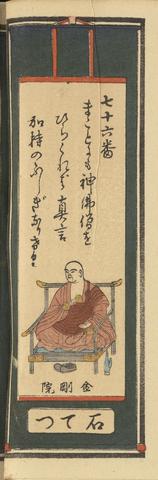 七十六番
まことにも神佛僧を
ひらくれば真言
加持のふしぎなりけり
金剛院
石てつ